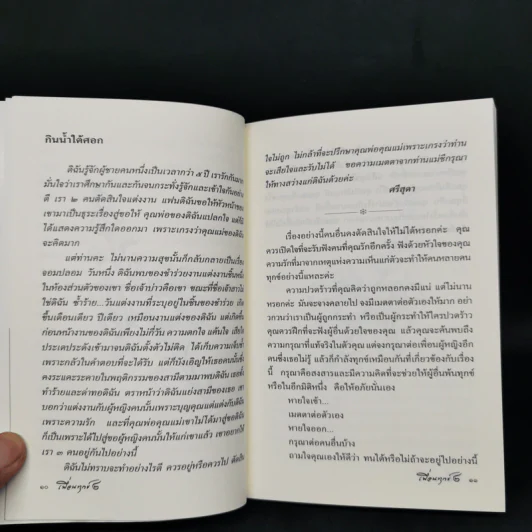 กินน้ำใต้ศอก
ดิฉันรู้จักผู้ชายคนหนึ่งเป็นเวลากว่า ๕ ปี เรารักกันมา
มั่นใจว่าเราศึกษากันและกันจนกระทั่งรู้จักและเข้าใจกันอย่าง
ดี เรา ๒ คนตัดสินใจแต่งงาน แฟนดิฉันขอให้หัวหน้าของ
เขามาเป็นธุระเรื่องสู่ขอให้ คุณพ่อของดิฉันแปลกใจ แต่ก็มิ
ได้แสดงความรู้สึกใดออกมา เพราะเกรงว่าคุณแม่ของดิฉัน
จะคิดมาก
แต่ท่านคะ ไม่นานความสุขนั้นก็กลับกลายเป็นเรื่อง
จอมปลอม วันหนึ่ง ดิฉันพบของชำร่วยงานแต่งงานชิ้นหนึ่ง
ในห้องส่วนตัวของเขา ชื่อเจ้าบ่าวคือเขา ขณะที่ชื่อเจ้าสาว
ใช่ดิฉัน ซ้ำร้าย...วันแต่งงานที่ระบุอยู่ในชิ้นของชำร่วย
ขึ้นเดือนเดียว ปีเดียว เหมือนงานแต่งของดิฉัน แต่เกิดขึ้น
ก่อนหน้างานของดิฉันเพียงไม่กี่วัน ความตกใจ แค้นใจ เสียใจ
ประเดประดังเข้ามาจนดิฉันตั้งตัวไม่ติด ได้เก็บความเจ็บ
เพราะกลัวในคำตอบที่จะได้รับ แต่ก็บังเอิญให้เธอคนนั้น
คงระแคะระคายในพฤติกรรมของสามีตามมาพบดิฉัน เธอ
ทำร้ายและด่าทอดิฉัน ตราหน้าว่าดิฉันแย่งสามีของเธอ เขา
บอกว่าแต่งงานกับผู้หญิงคนนั้นเพราะบุญคุณแต่แต่งกับดิฉัน
เพราะความรัก และที่คุณพ่อคุณแม่เขาไม่ได้มาสู่ขอดิฉัน
ก็เป็นเพราะได้ไปสู่ขอผู้หญิงคนนั้นให้แก่เขาแล้ว เขาอยากให้
เรา ๓ คนอยู่กันไปอย่างนี้
ดิฉันไม่ทราบจะทำอย่างไรดี ควรอยู่หรือควรไป ตัดสิน
๑๐ เพื่อนทุกข์ ๒
ใจไม่ถูก ไม่กล้าที่จะปรึกษาคุณพ่อคุณแม่เพราะเกรงว่าท่าน
จะเสียใจและรับไม่ได้ ขอความเมตตาจากท่านแม่ชีกรุณา
ให้ทางสว่างแก่ดิฉันด้วยค่ะ
ศรีสุดา
เรื่องอย่างนี้คนอื่นคงตัดสินใจให้ไม่ได้หรอกค่ะ คุณ
ควรเปิดใจที่จะรับฟังคนที่คุณรักอีกครั้ง ฟังด้วยหัวใจของคุณ
ความรักที่มาจากเหตุแห่งความเห็นแก่ตัวจะทำให้คนหลายคน
ทุกข์อย่างนี้แหละค่ะ
ความปวดร้าวที่คุณคิดว่าถูกหลอกคงมีแน่ แต่ไม่นาน
หรอกค่ะ มันจะจางคลายไป จงมีเมตตาต่อตัวเองให้มาก อย่า
กวนว่าเราเป็นผู้ถูกกระทำ หรือเป็นผู้กระทำให้ใครปวดร้าว
คุณควรฝึกที่จะฟังผู้อื่นด้วยใจของคุณ แล้วคุณจะค้นพบถึง
ความทุกข์ที่แท้จริงในตัวคุณ แต่จงกรุณาต่อเพื่อนผู้หญิงอีก
คนซึ่งเธอไม่รู้ แล้วก็กำลังทุกข์เหมือนกันที่เกี่ยวข้องกับเรื่อง
นี้ กรุณาคือสงสารและมีความคิดที่จะช่วยให้ผู้อื่นพ้นทุกข์
หรือในอีกมิติหนึ่ง คือให้อภัยนั่นเอง
หายใจเข้า...
เมตตาต่อตัวเอง
หายใจออก...
กรุณาต่อคนอื่นบ้าง
ถามใจคุณเองให้ดีว่า ทนได้หรือไม่ถ้าจะอยู่ไปอย่างนี้
เพื่อนทุกข์ ๒ ๑๑